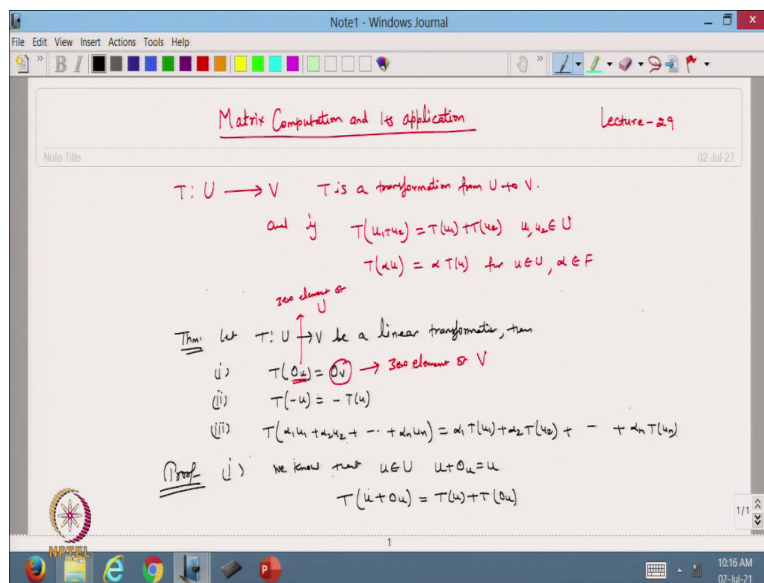 Note1 - Windows Journal
File Edit View Insert Actions Tools Help
B I
Matrix Computation and Its application
Lecture-29
Note Title
02-Jul-21
T: U → V T is a transformation from U to V.
and if T(u₁+u₂) = T(u₁)+T(u₂) u₁,u₂ ∈ U
T(αu) = α T(u) for u∈U, α∈F
zero element of
U
Thm: Let T: U → V be a linear transformation, then
(i) T(0u) = 0v → zero element of V
(ii) T(-u) = - T(u)
(iii) T(α₁u₁ + α₂u₂ + -- + αₙuₙ) = α₁T(u₁) + α₂T(u₂) + -- + αₙT(uₙ)
Proof (i) we know that u∈U u+0u = u
T(u+0u) = T(u)+T(0u)
1/1
NPTEL
1
10:16 AM
02-Jul-21